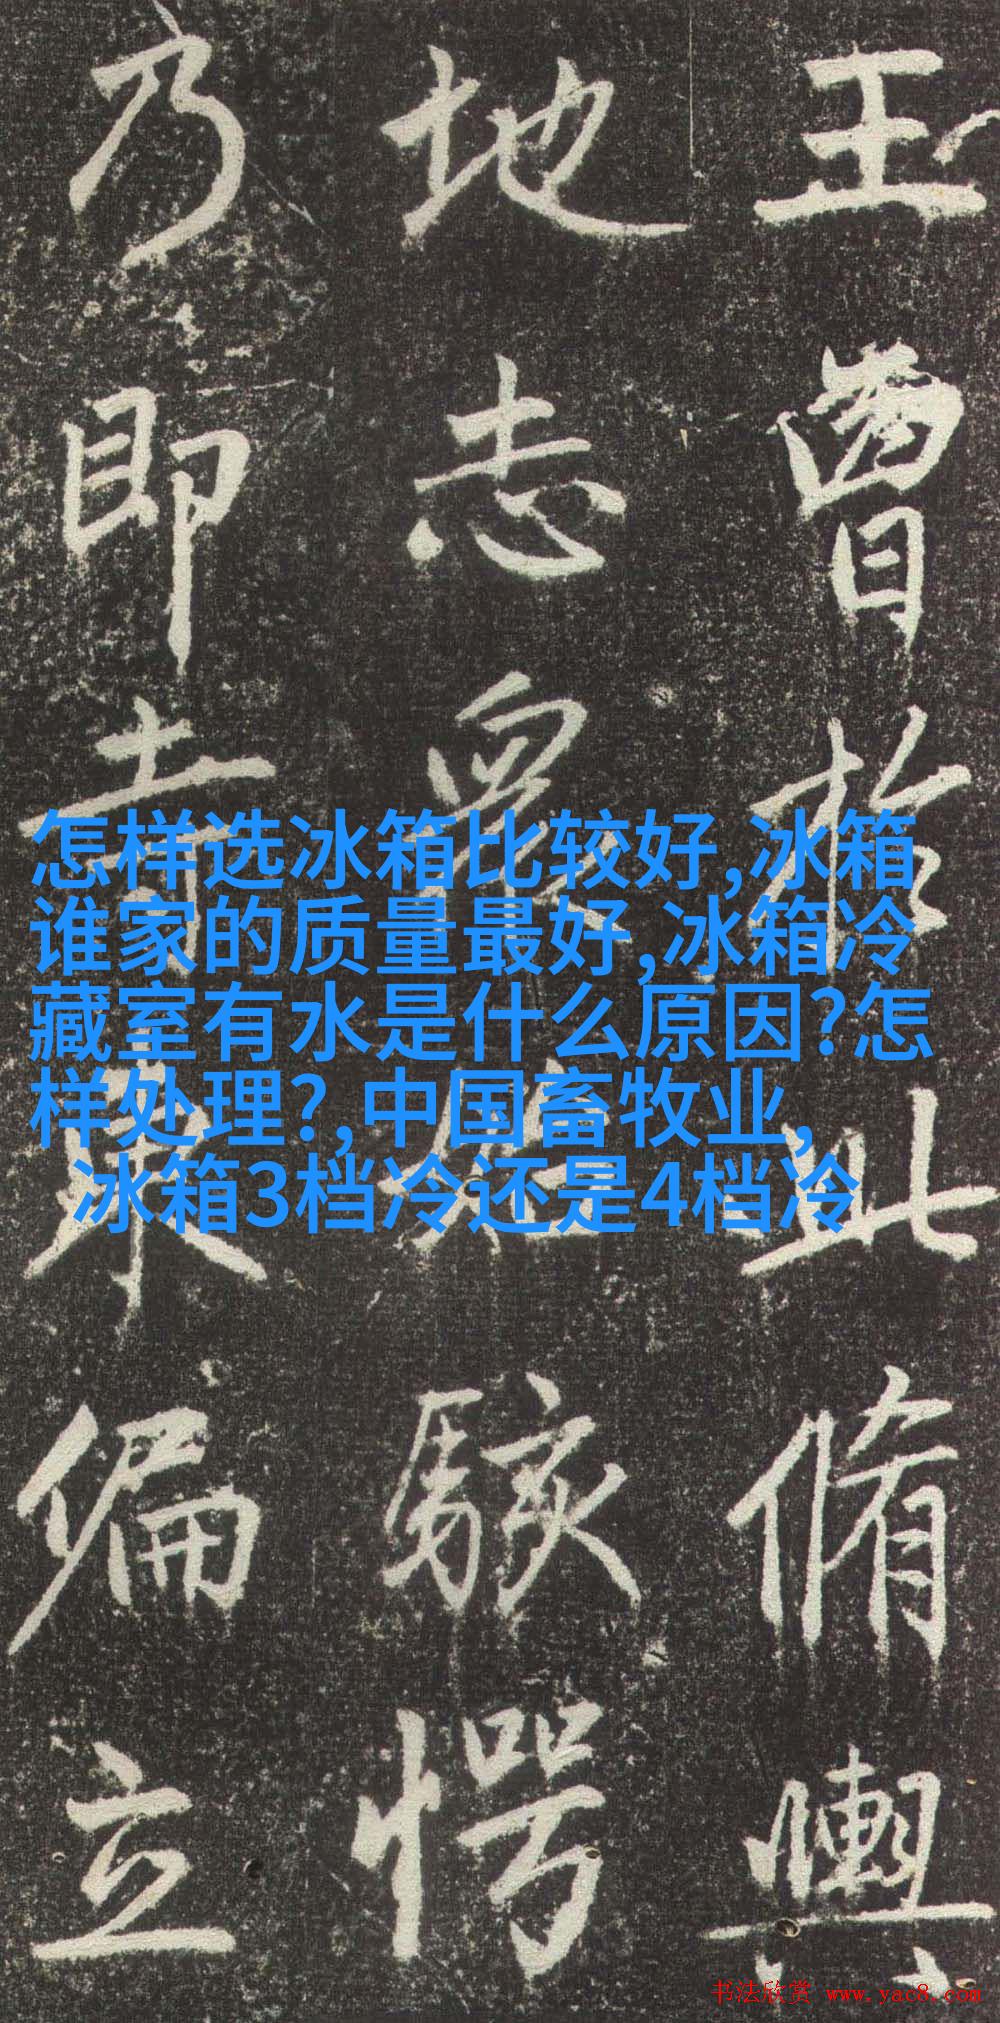 王
曹於此脩輿
地志最如駭愕
乃即青東偏立
怎样选冰箱比较好,冰箱
谁家的质量最好,冰箱冷
藏室有水是什么原因?怎
样处理?,中国畜牧业,
冰箱3档冷还是4档冷
书法欣赏 www.yac8.com